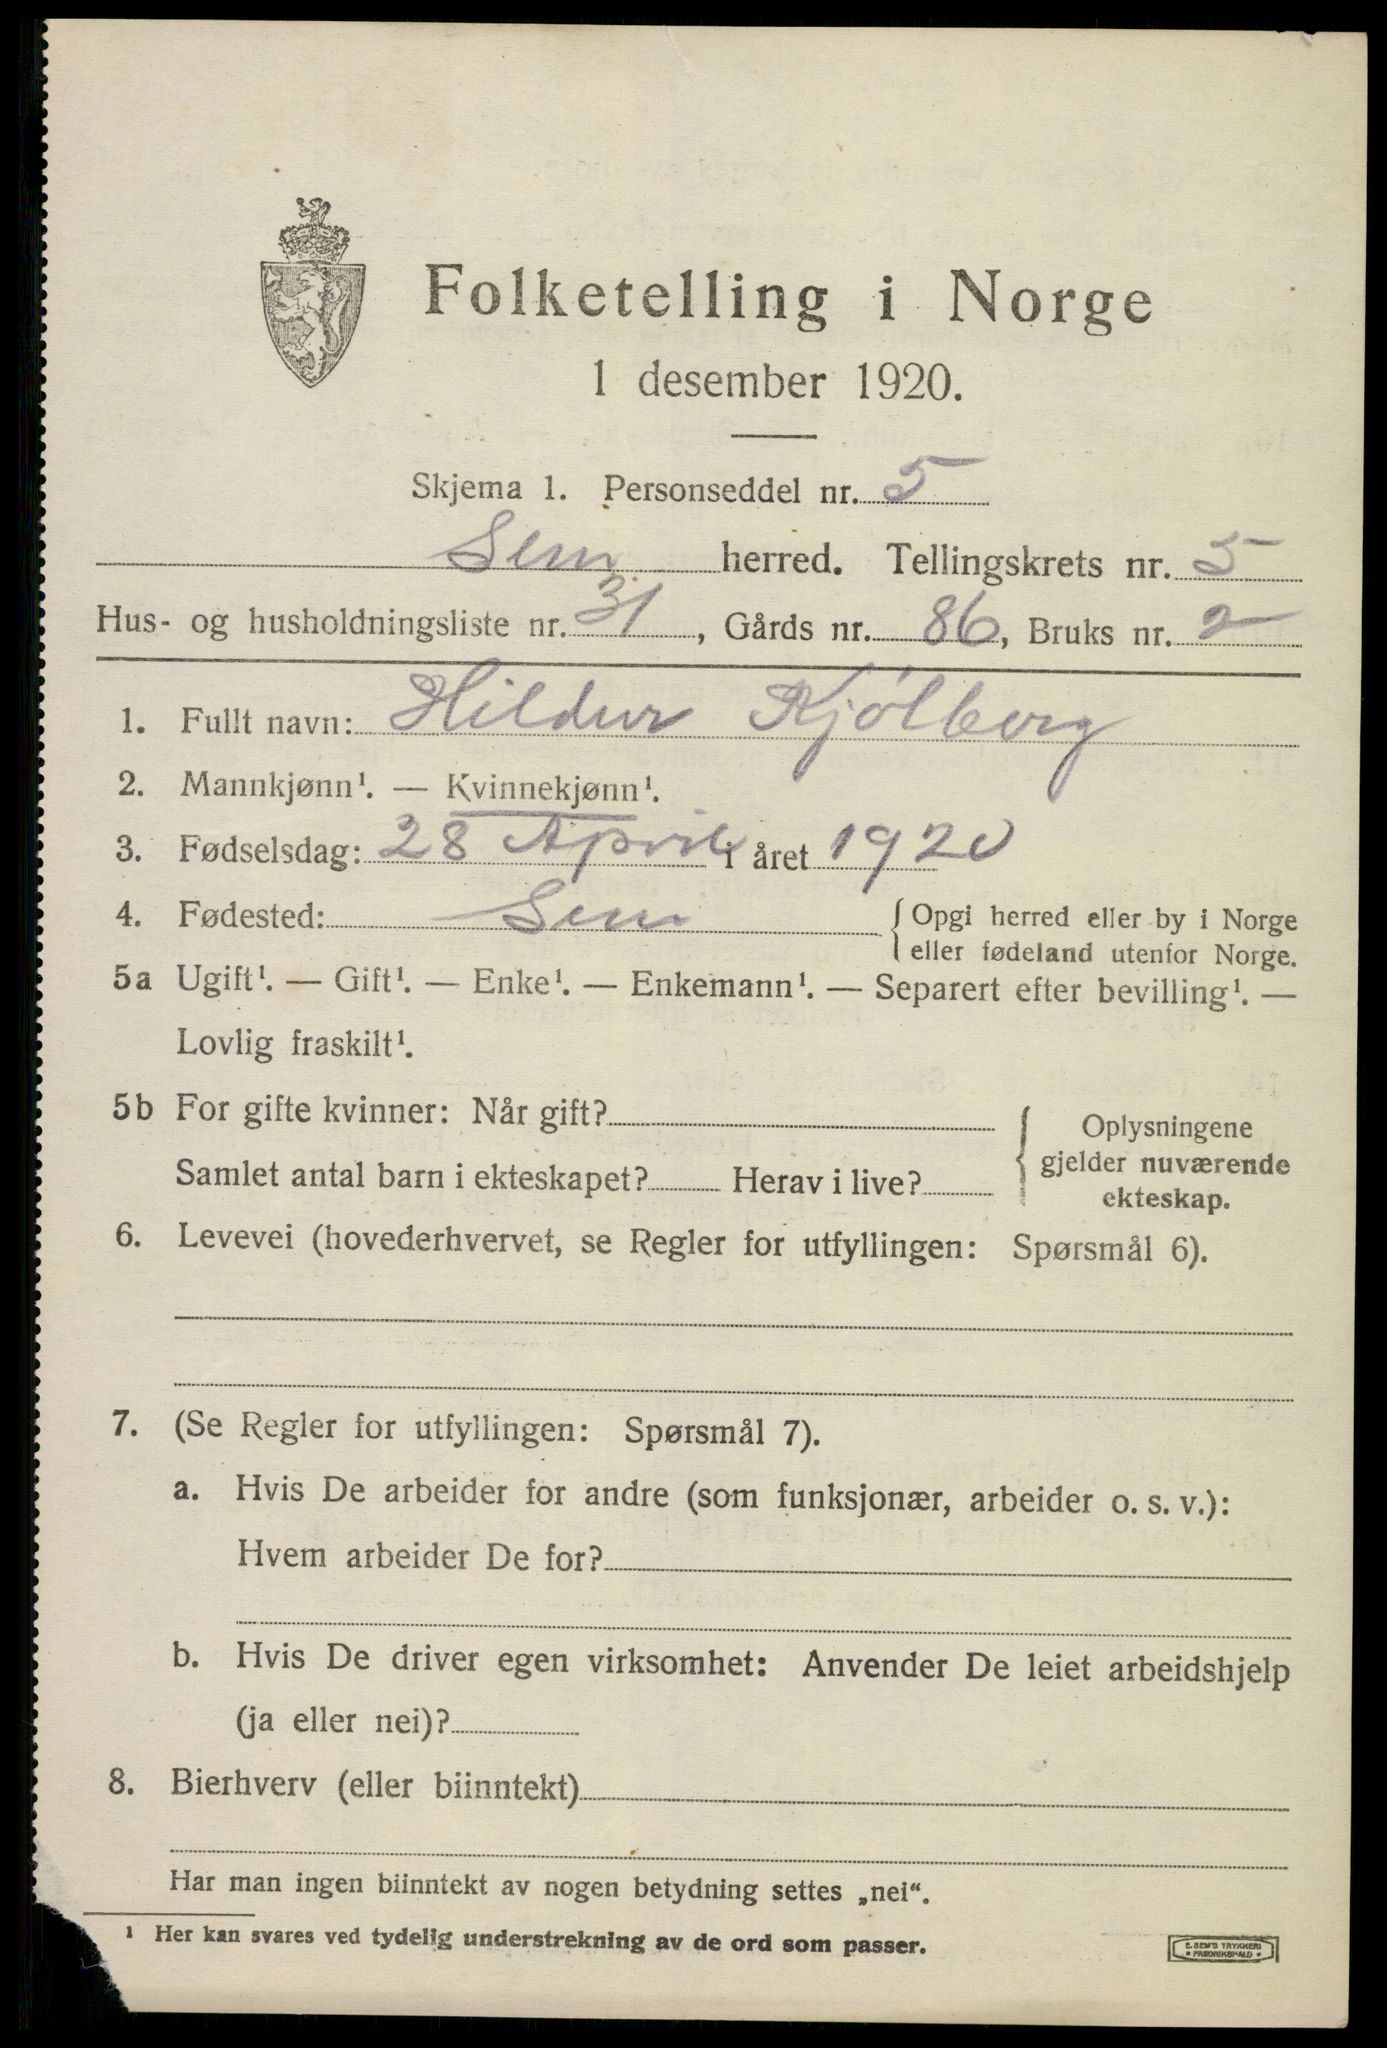 Folketelling i Norge
1 desember 1920.
Skjema 1. Personseddel nr. 5
Sem herred. Tellingskrets nr. 5
Hus- og husholdningsliste nr. 31, Gårds nr. 86, Bruks nr. 2
1. Fullt navn: Hildur Kjólberg
2. Mannkjønn¹. — Kvinnekjønn¹.
3. Fødselsdag: 28 April i året 1920
4. Fødested: Sem { Opgi herred eller by i Norge
eller fødeland utenfor Norge.
5a Ugift¹. — Gift¹. — Enke¹. — Enkemann¹. — Separert efter bevilling¹. —
Lovlig fraskilt¹.
5b For gifte kvinner: Når gift?
Samlet antal barn i ekteskapet? Herav i live?
Oplysningene
gjelder nuværende
ekteskap.
6. Levevei (hovederhvervet, se Regler for utfyllingen: Spørsmål 6).
7. (Se Regler for utfyllingen: Spørsmål 7).
a. Hvis De arbeider for andre (som funksjonær, arbeider o. s. v.):
Hvem arbeider De for?
b. Hvis De driver egen virksomhet: Anvender De leiet arbeidshjelp
(ja eller nei)?
8. Bierhverv (eller biinntekt)
Har man ingen biinntekt av nogen betydning settes „nei“.
¹ Her kan svares ved tydelig understrekning av de ord som passer.
E. SEM'S TRYKKERI
• FREDRIKSHALD •